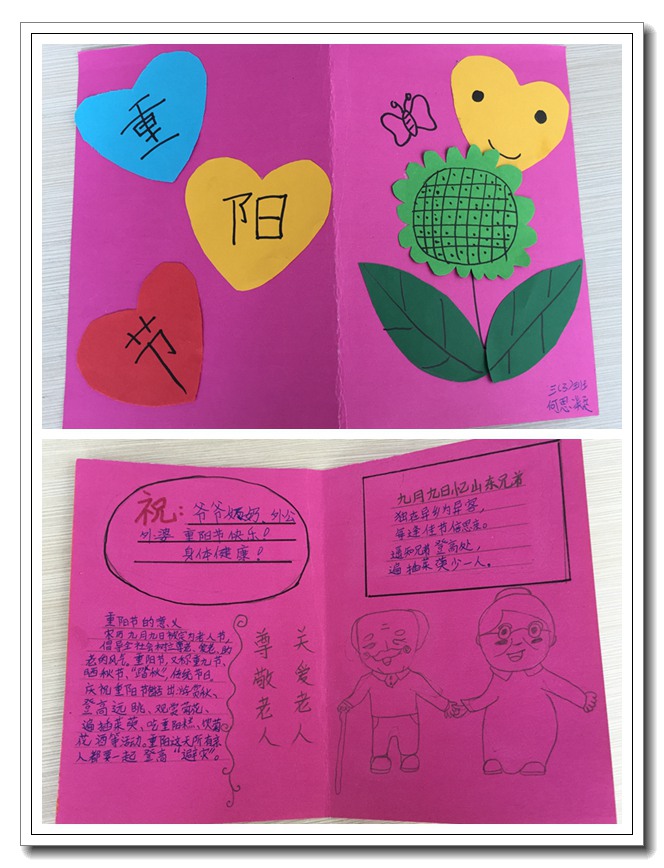 重
阳
节
祝：爷爷奶奶、外公
外婆 重阳节快乐！
身体健康！
重阳节的意义
农历九月九日被定为老人节，
倡导全社会树立尊老、爱老、
老的风气。重阳节，又称重九节、
晒秋节、“踏秋”，传统节日。
庆祝重阳节出游赏秋、
登高远眺、观赏菊花、
遍插茱萸、吃重阳糕、饮菊
花酒等活动。重阳这天所有亲
人都要一起登高“避灾”。
关爱老人
尊敬老人
九月九日忆山东兄弟
独在异乡为异客，
每逢佳节倍思亲。
遥知兄弟登高处，
遍插茱萸少一人。